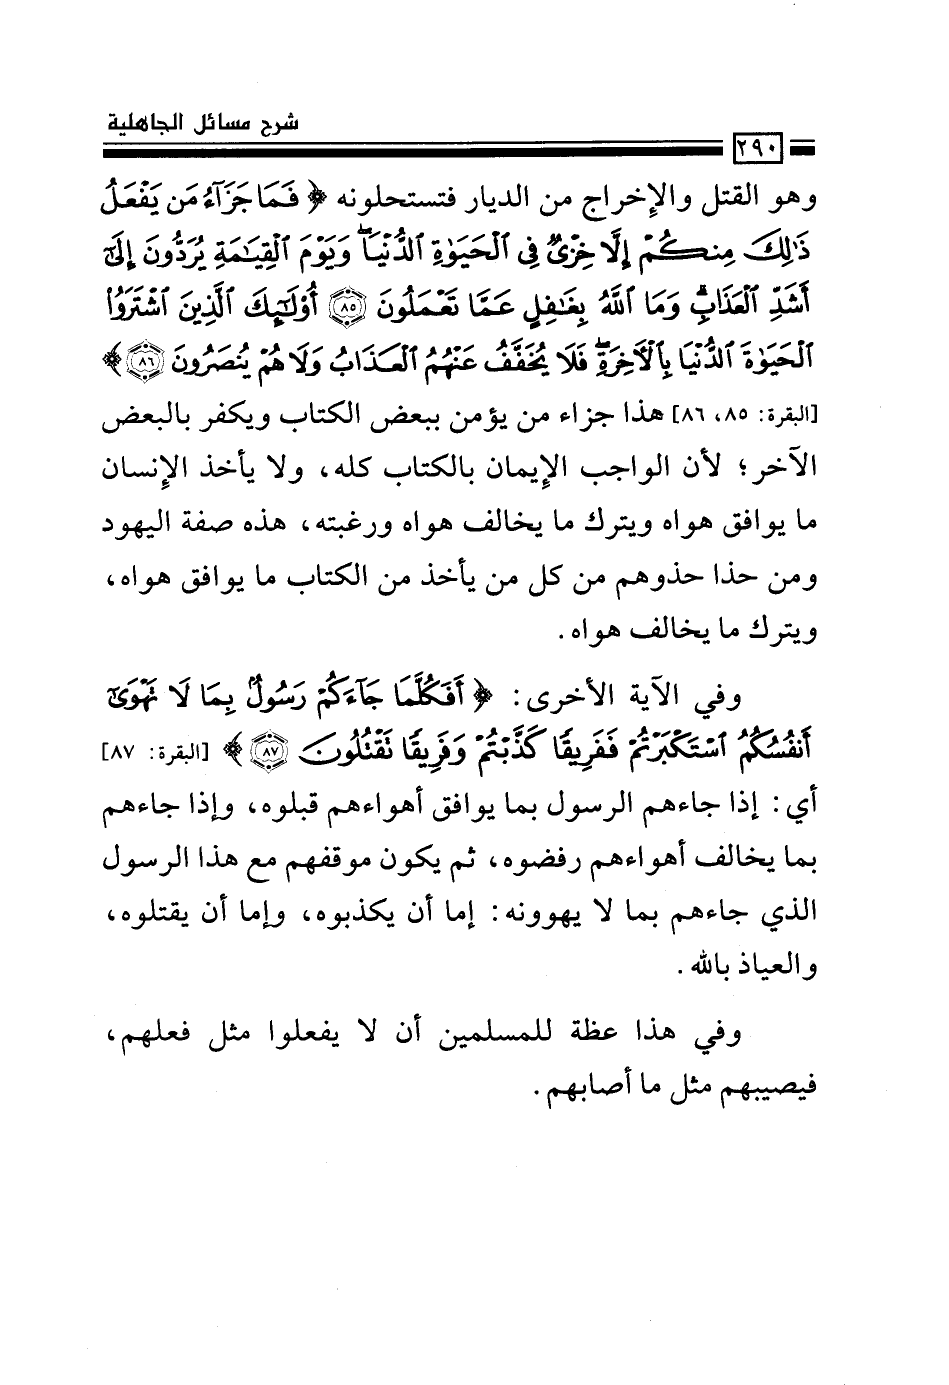 شرح مسائل الجاهلية
٢٩٠
وهو القتل والإخراج من الديار فتستحلونه ﴿ فَمَا جَزَآءُ مَن يَفْعَلُ
ذَٰلِكَ مِنكُمْ إِلَّا خِزْىٌ فِى ٱلْحَيَوٰةِ ٱلدُّنْيَا ۖ وَيَوْمَ ٱلْقِيَـٰمَةِ يُرَدُّونَ إِلَىٰٓ
أَشَدِّ ٱلْعَذَابِ ۗ وَمَا ٱللَّهُ بِغَـٰفِلٍ عَمَّا تَعْمَلُونَ ٨٥ أُو۟لَـٰٓئِكَ ٱلَّذِينَ ٱشْتَرَوُا۟
ٱلْحَيَوٰةَ ٱلدُّنْيَا بِٱلْـَٔاخِرَةِ ۖ فَلَا يُخَفَّفُ عَنْهُمُ ٱلْعَذَابُ وَلَا هُمْ يُنصَرُونَ ٨٦ ﴾
[البقرة: ٨٥، ٨٦] هذا جزاء من يؤمن ببعض الكتاب ويكفر بالبعض
الآخر؛ لأن الواجب الإيمان بالكتاب كله، ولا يأخذ الإنسان
ما يوافق هواه ويترك ما يخالف هواه ورغبته، هذه صفة اليهود
ومن حذا حذوهم من كل من يأخذ من الكتاب ما يوافق هواه،
ويترك ما يخالف هواه.
وفي الآية الأخرى: ﴿ أَفَكُلَّمَا جَآءَكُمْ رَسُولٌۢ بِمَا لَا تَهْوَىٰٓ
أَنفُسُكُمُ ٱسْتَكْبَرْتُمْ فَفَرِيقًا كَذَّبْتُمْ وَفَرِيقًا تَقْتُلُونَ ٨٧ ﴾ [البقرة: ٨٧]
أي: إذا جاءهم الرسول بما يوافق أهواءهم قبلوه، وإذا جاءهم
بما يخالف أهواءهم رفضوه، ثم يكون موقفهم مع هذا الرسول
الذي جاءهم بما لا يهوونه: إما أن يكذبوه، وإما أن يقتلوه،
والعياذ بالله.
وفي هذا عظة للمسلمين أن لا يفعلوا مثل فعلهم،
فيصيبهم مثل ما أصابهم.